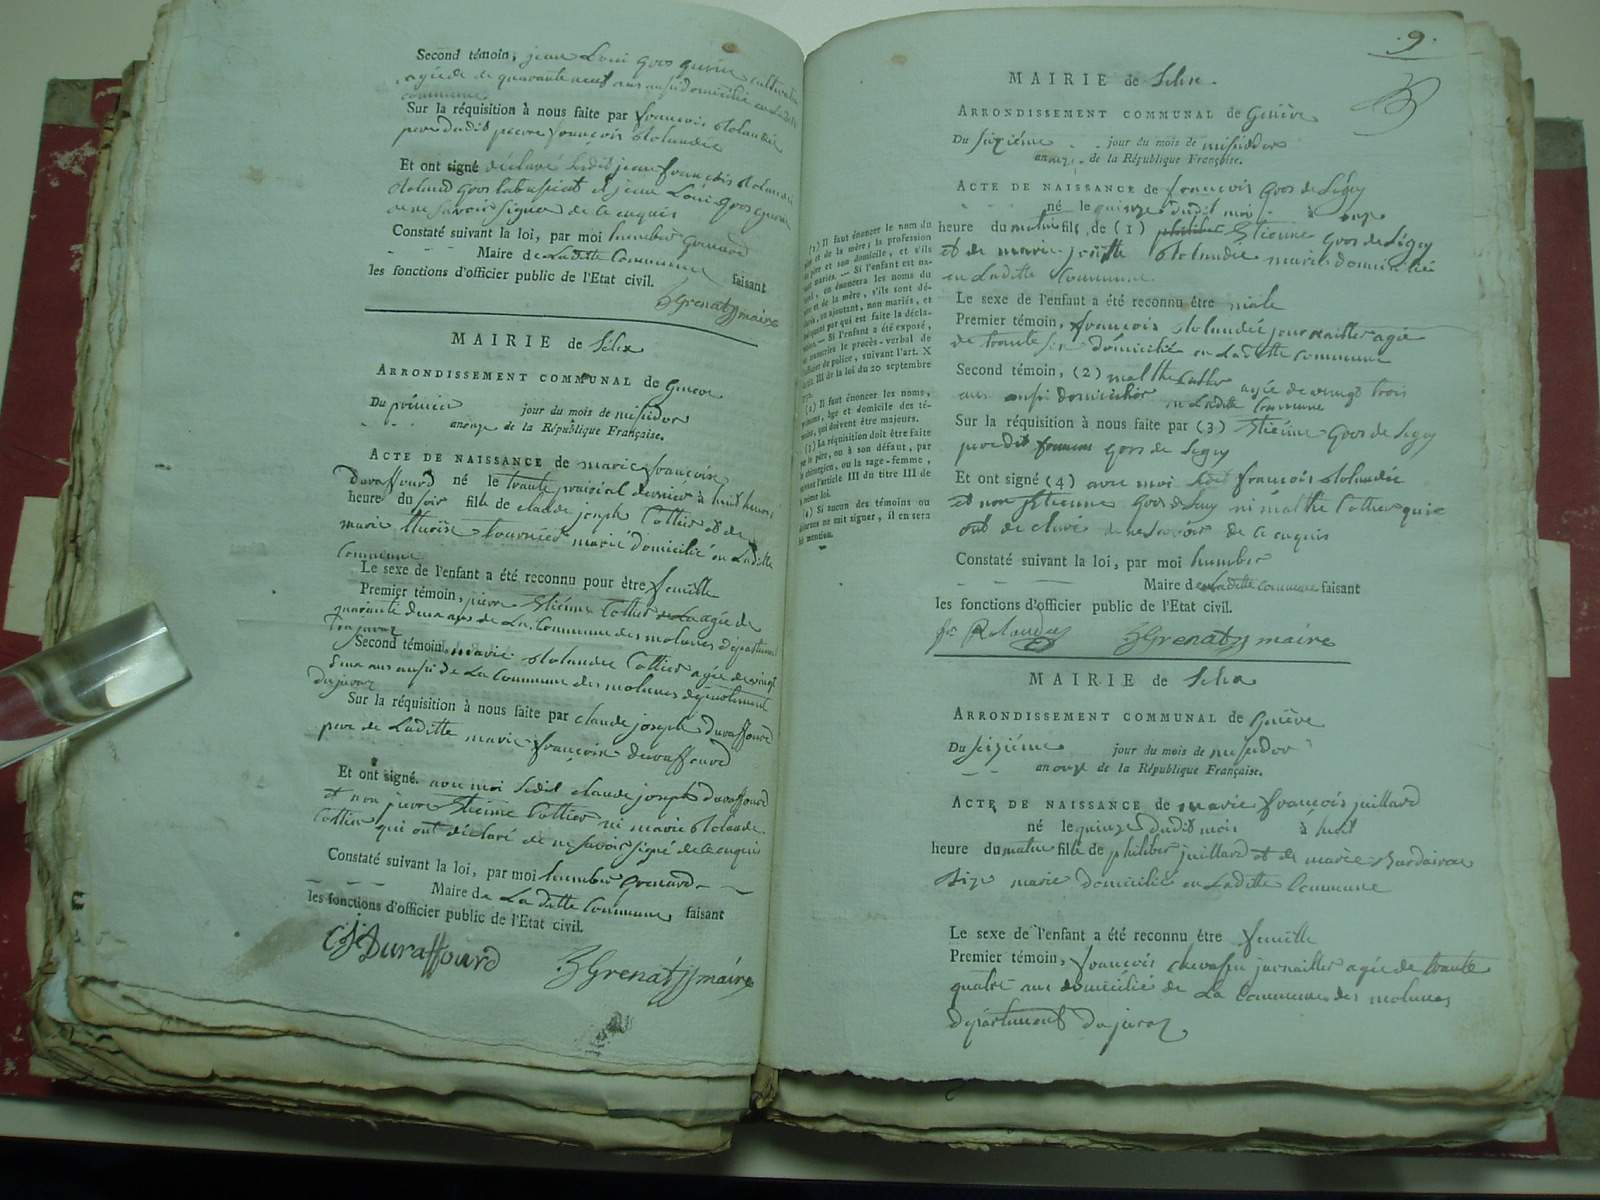 Second témoin, jean Loui gros gurin cultivateur
agée de quarante neuf ans aussi domicilié en Laditte
commune
Sur la réquisition à nous faite par françois Rolandée
pere dudit pierre françois Rolandée
Et ont signé déclaré jean françois Rolandée
Roland gros et jean Loui gros gurin
de ne savoir signer de ce enquis
Constaté suivant la loi, par moi humber grenard
Maire de Laditte Commune faisant
les fonctions d'officier public de l'Etat civil.
Grenat maire
MAIRIE de Lélex
ARRONDISSEMENT COMMUNAL de Genève
Du prémier jour du mois de messidor
an onze de la République Française.
ACTE DE NAISSANCE de marie françoise
duraffourd né le trante prairial dernier à huit heures
heure du soir fille de claude joseph Cottier et de
marie thérèse tournier marié domicilié en Laditte
Commune
Le sexe de l'enfant a été reconnu pour être femelle
Premier témoin, pierre Etiénne Cottier agée de
quarante deux ans de La Commune des molunes département
du juraz
Second témoin, marie Rolandée Cottier agée de vingt
deux ans aussi de La Commune des molunes département
du juraz
Sur la réquisition à nous faite par claude joseph duraffourd
pere de Laditte marie françoise duraffourd
Et ont signé avec moi Ledit claude joseph duraffourd
et non pierre Etiénne Cottier ni marie Rolandée
Cottier qui ont déclaré de ne savoir signé de ce enquis
Constaté suivant la loi, par moi humber grenard
Maire de Laditte Commune faisant
les fonctions d'officier public de l'Etat civil.
CJ Duraffourd Grenat maire
.9.
MAIRIE de Lélex
ARRONDISSEMENT COMMUNAL de Genève
Du seiziéme jour du mois de messidor
an onze de la République Française.
ACTE DE NAISSANCE de françois gros de Légey
né le quinze dudit moi à onze
heure du matin fils de (1) philiber Etienne gros de Légey
et de marie josette Rolandée marié domicilié
en Laditte Commune
Le sexe de l'enfant a été reconnu être male
Premier témoin, françois Rolandée journaillier agée
de trante six domicilié en Laditte Commune
Second témoin, (2) malthe Cottier agée de vingt trois
ans aussi domicilié
en Laditte Commune
Sur la réquisition à nous faite par (3) Etiénne gros de Legey
pere dit francois gros de Legey
Et ont signé (4) avec moi françois Rolandée
et non Etienne gros de Legey ni malthe Cottier qui
ont declaré de ne savoir de ce enquis
Constaté suivant la loi, par moi humber
Maire de Laditte commune faisant
les fonctions d'officier public de l'Etat civil.
fr Rolandez Grenat maire
(1) Il faut énoncer le nom du
et de la mère; la profession
père et son domicile, et s'ils
sont mariés. — Si l'enfant est na-
turel, on énoncera les noms du
père et de la mère, s'ils sont dé-
clarés, en ajoutant, non mariés, et
indiquant par qui est faite la décla-
ration. — Si l'enfant a été exposé,
transcrire le procès-verbal de
l'officier de police, suivant l'art. X
titre III de la loi du 20 septembre
(2) Il faut énoncer les noms,
prénoms, âge et domicile des té-
moins, qui doivent être majeurs.
(3) La réquisition doit être faite
par le père, ou à son défaut, par
le chirurgien, ou la sage-femme,
suivant l'article III du titre III de
la même loi.
(4) Si aucun des témoins ou
ne sait signer, il en sera
fait mention.
MAIRIE de Lélex
ARRONDISSEMENT COMMUNAL de Genève
Du seiziéme jour du mois de messidor
an onze de la République Française.
ACTE DE NAISSANCE de marie françois juillard
né le quinze dudit mois à huit
heure du matin fille de philiber juillard et de marie
marié domicilié en Laditte Commune
Le sexe de l'enfant a été reconnu être femelle
Premier témoin, françois chevassu journaillier agée de trante
quatre ans domicilié de La Commune des molunes
département du juraz